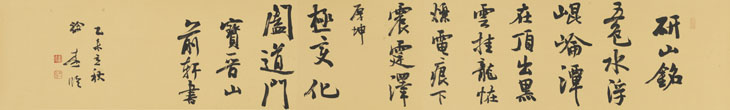 研山銘
五色水浮
崐崘潭
在頂出黑
雲挂龍怪
爍電痕下
震霆澤
厚坤
極變化
闔道門
寶晉山
前軒書
乙未立秋